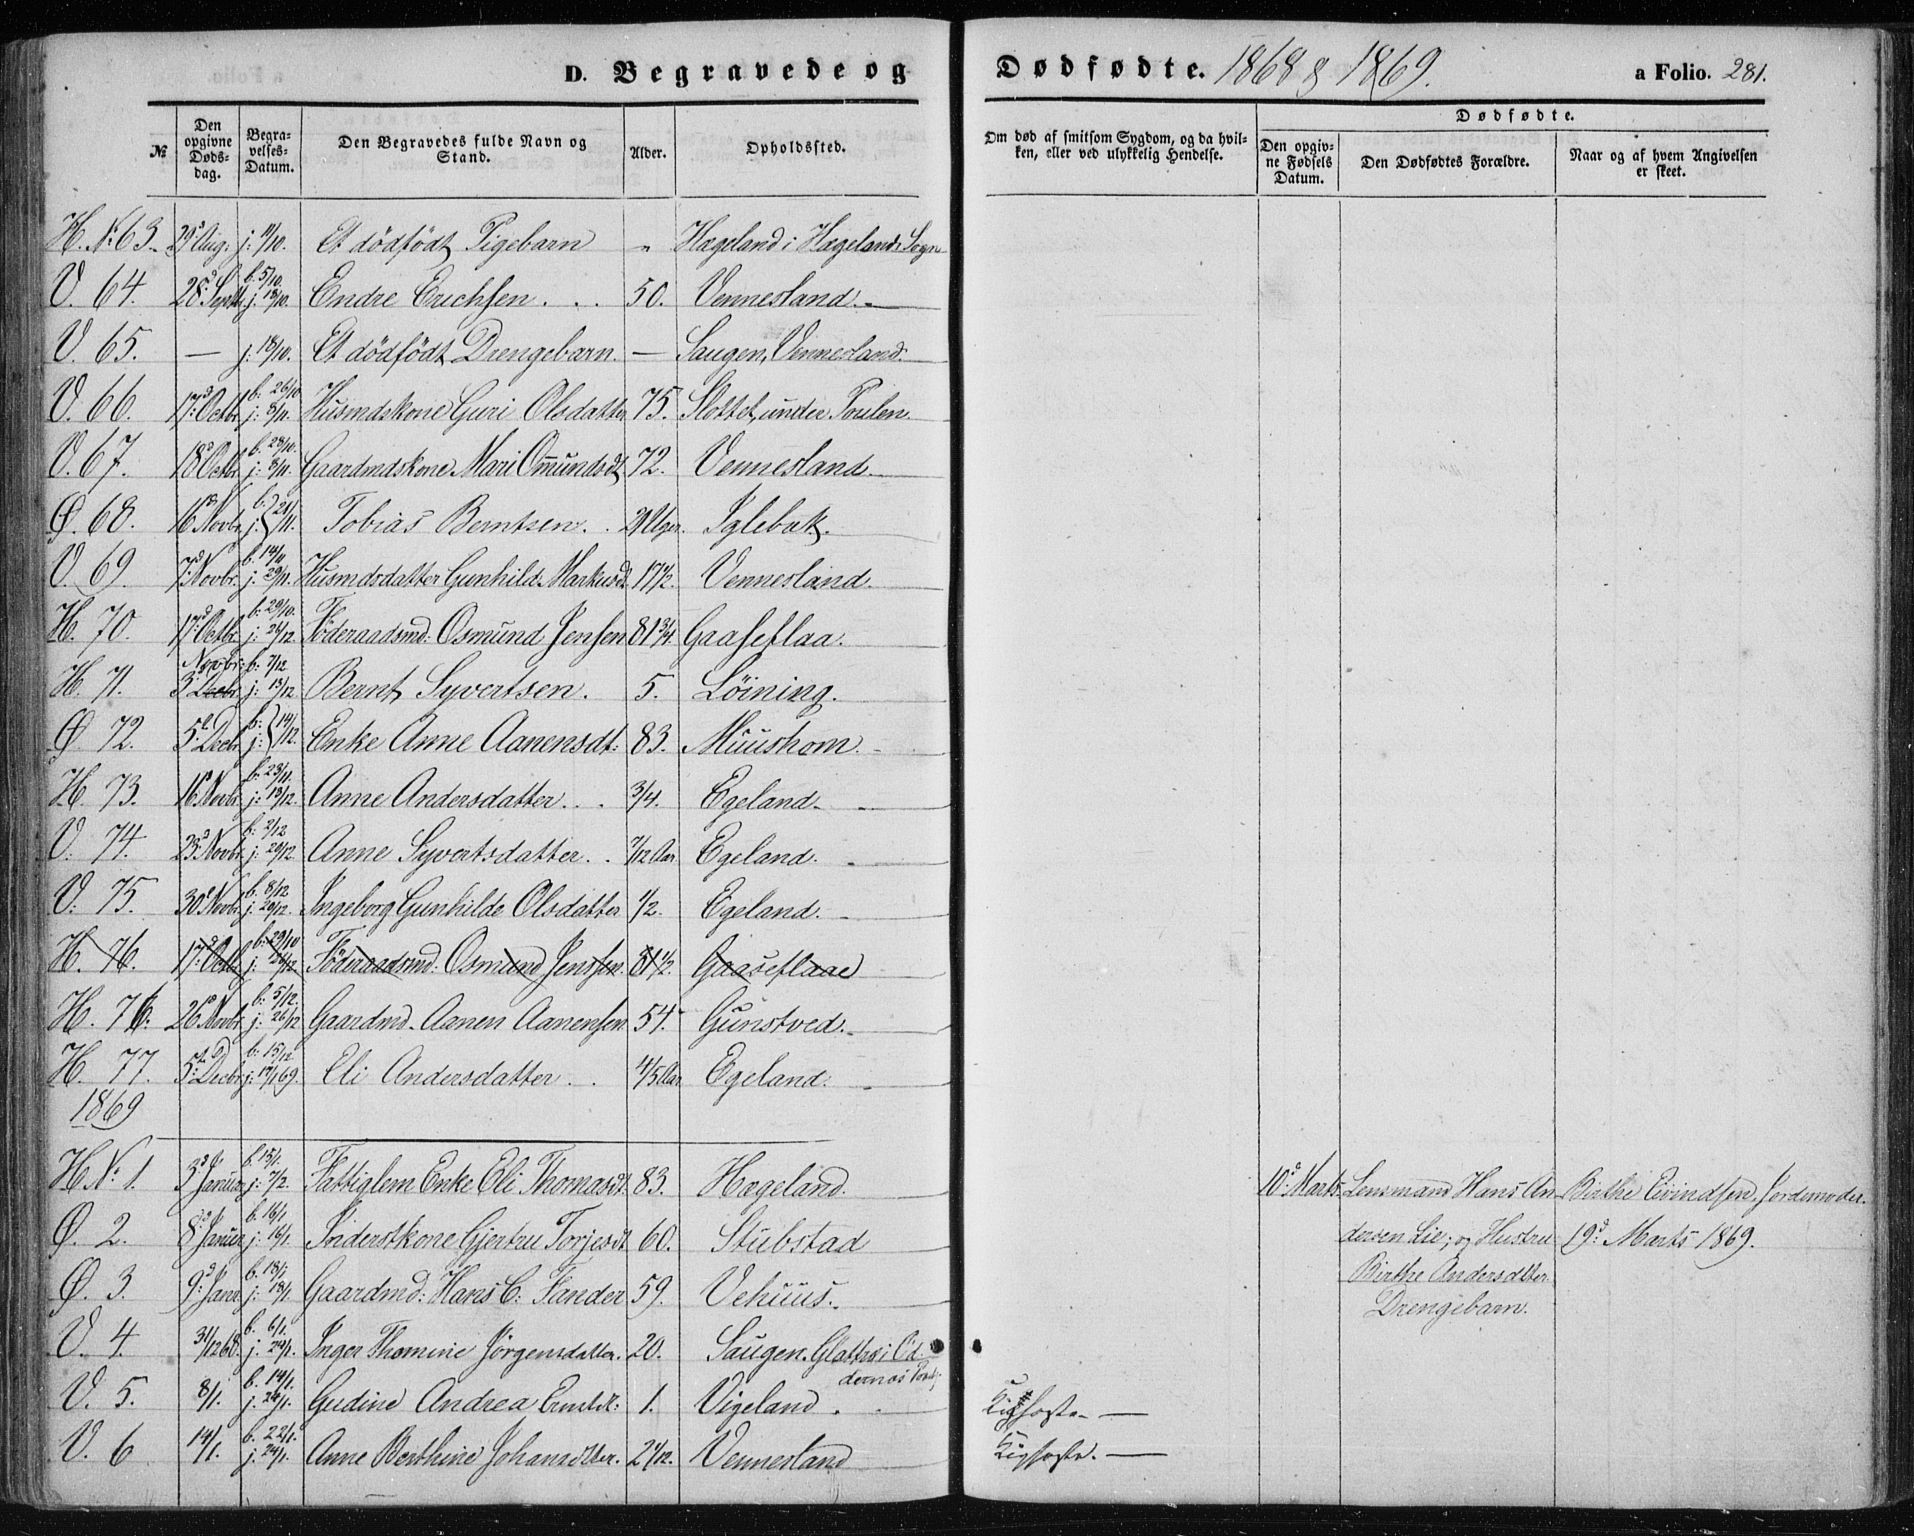 D. Begravede og Dødfødte. 1868 & 1869. a Folio. 281.
№ Den opgivne Døds-dag. Begra-velses-Datum. Den Begravedes fulde Navn og Stand. Alder. Opholdssted. Om død af smitsom Sygdom, og da hvil-ken, eller ved ulykkelig Hendelse. Dødfødte. Den opgiv-ne Fødsels Datum. Den Dødfødtes Forældre. Naar og af hvem Angivelsen er skeet.
H. № 63. 29d Aug: j. 11/10. Et dödfödt Pigebarn " Hægeland i Hægelands Sogn
V. 64. 28d Septbr b. 5/10. j. 18/10. Endre Erichsen . . . 50. Vennesland.
V. 65. — j. 18/10. Et dödfödt Drengebarn. — Saugen, Vennesland.
V. 66. 17d Octbr b. 26/10 j. 8/11. Husmdskone Guri Olsdatter 75. Slottet, under Poulen.
V. 67. 18d Octbr b. 28/10. j. 8/11. Gaardmdskone Mari Omundsdt 72. Vennesland.
Ø. 68. 16d Novbr b. j. } 21/11. Tobias Berntsen. . Iglebak.
V. 69. 7d Novbr. b. 14/11 j. 29/11. Husmdsdatter Gunhild Markusd. 17 1/2. Vennesland.
H. 70. 17d Octbr b. 29/10. j. 26/12. Föderaadsmd: Osmund Jensen 81 3/4. Gaaseflaa.
H. 71. 3d Decbr Novbr: b: 7/12 j: 13/12. Bernt Syvertsen. 5. Löining.
Ø. 72. 5te Decbr b: j: } 14/12. Enke Anne Aanensdt: 83. Muushom.
H. 73. 16d Novbr b: 23/11. j: 13/12. Anne Andersdatter . . . 3/4. Egeland.
V. 74. 23d Novbr b: 2/12 j: 20/12. Anne Syvertsdatter . . 7/12 Aar Egeland.
V. 75. 30d Novbr b: 8/12 j: 20/12. Ingeborg Gunhilde Olsdatter 1/2. Egeland.
H. 76. 17d Octbr b: 29/10 j: 26/12. Föderaadsmd: Osmund Jensen. 81 1/2. Gaaseflaae
H. 76. 26d Novb b: 5/12. j: 26/12 Gaardmd. Aanen Aanensen 54. Gunstved.
H. 77. 5te Decbr b: 15/12 j: 17/1 69. Eli Andersdatter . . 4/5 Aar Egeland.
1869
H. № 1. 3d Januar b. 15/1. j: 7/2. Fattiglem Enke Eli Thomasdt. 83. Hægeland. 10d Marts Lensmand Hans An- Birthe Eivindsen, Jordemoder.
Ø. 2. 8d Januar b. 16/1 j: 16/1. Inderstkone Gjertru Torjesdt 60. Stubstad dersen Lie, og Hustru 19d Marts 1869.
Ø. 3. 9d Janr b. 18/1 j: 18/1. Gaardmd: Hans C: Fander 59. Vehuus. Birthe Andersdtter
Drengebarn.
V. 4. 31/12 68. b. 6/1. j. 24/1. Inger Thomine Jörgensdatter. 20. Saugen. Glattre i Od-
dernæs Præstgj
V. 5. 8/1. b. 14/1. j. 24/1. Gudine Andrea 1. Vigeland . Kighoste. —
V. 6 14/1. b. 22/1. j. 24/1. Anne Berthine Johansdtter. Vennesland Kighoste. —